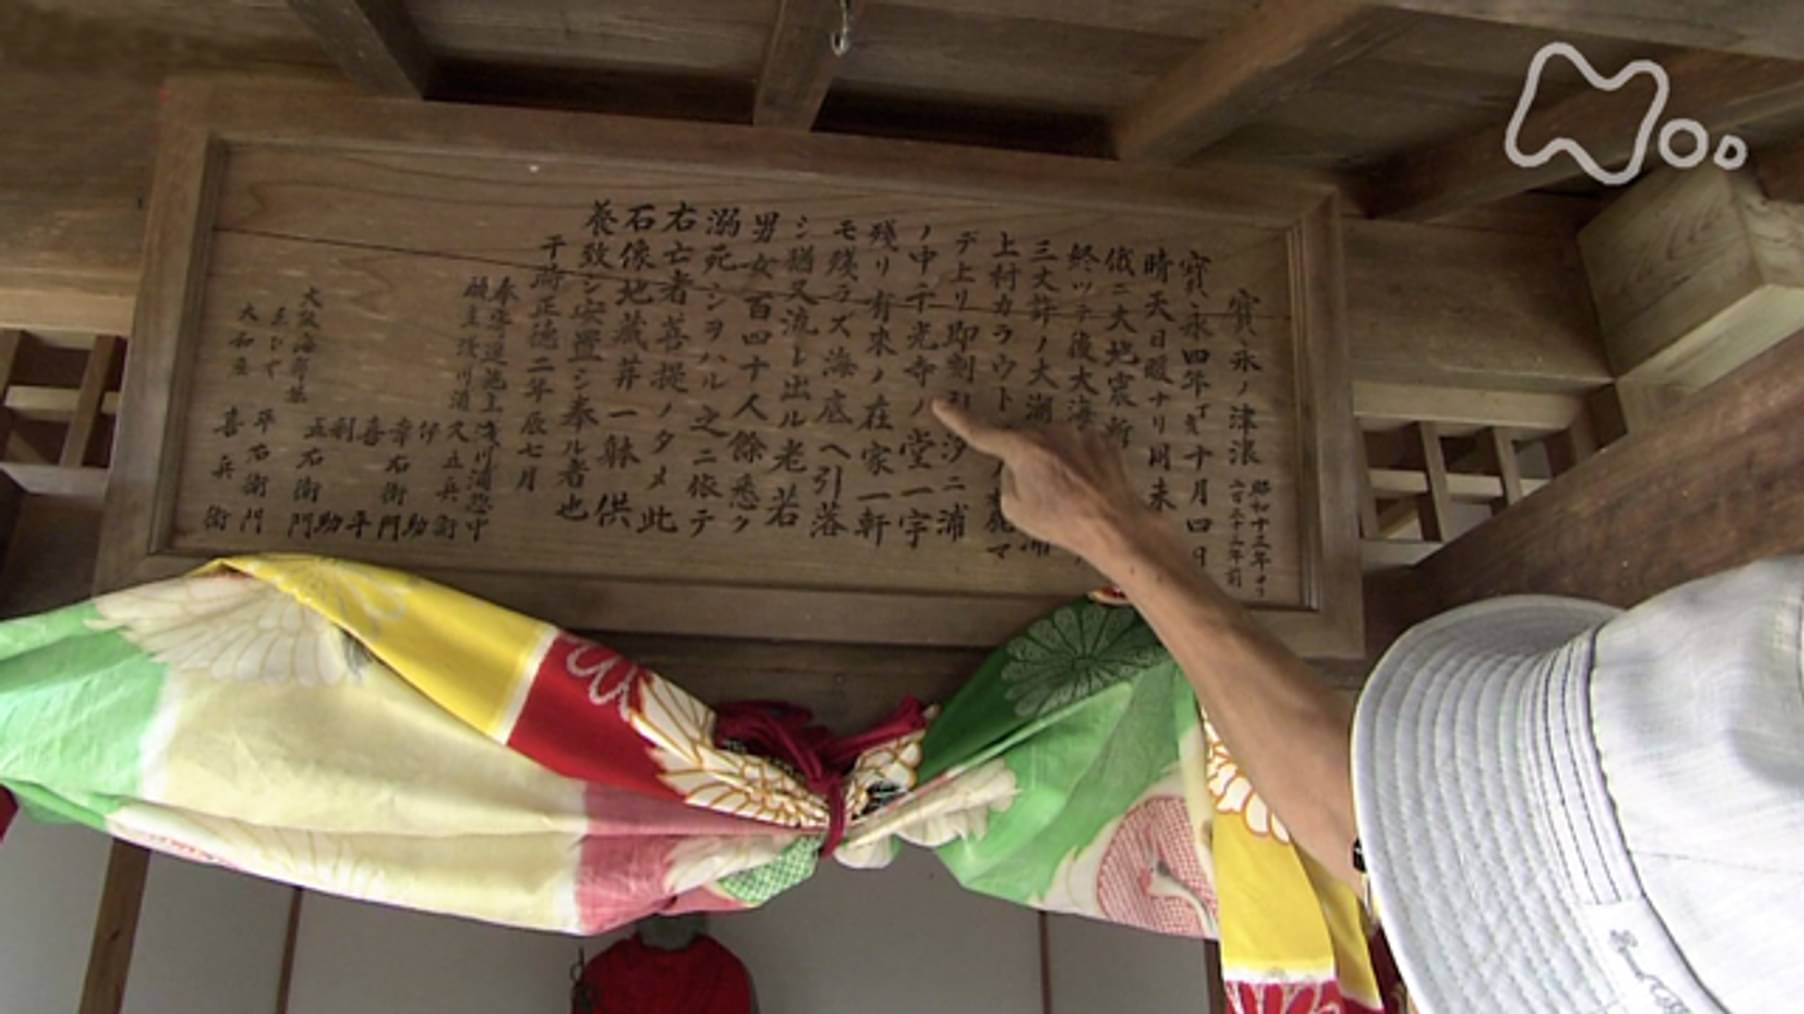 寳永ノ津浪 昭和十三年ヨリ
二百三十二年前
寳永四年丁亥十月四日
晴天日暖ナリ同未
俄ニ大地震暫
終ッテ後大海
三丈許ノ大潮 浦
上村カラウト マ
デ上リ即刻引汐ニ浦
ノ中千光寺ノ堂一宇
残リ有来ノ在家一軒
モ残ラズ海底ヘ引落
シ猶又流レ出ル老若
男女百四十人餘悉ク
溺死シヲハル之ニ依テ
右亡者菩提ノタメ此
石像地蔵菩一躰供
養致シ安置シ奉ル者也
干時正徳二年辰七月
奉寄進施上浅川浦惣中
願主浅川浦 又五兵衛
伊助
幸右衛門
喜平
利助
五右衛門
大阪海部堀
平右衛門
大和屋 喜兵衛